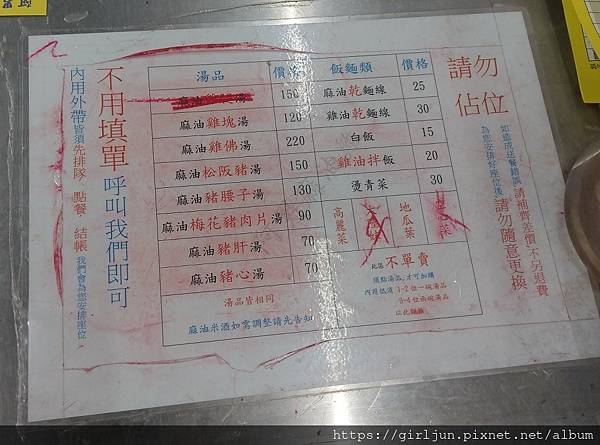 不用填單
呼叫我們即可
內用外帶皆須先排隊、點餐、結帳
我們會為您安排座位
湯品 價格
150
麻油雞塊湯 120
麻油雞佛湯 220
麻油松阪豬湯 150
麻油豬腰子湯 130
麻油梅花豬肉片湯 90
麻油豬肝湯 70
麻油豬心湯 70
湯品皆相同
麻油米酒如需調整請先告知
飯麵類 價格
麻油乾麵線 25
雞油乾麵線 30
白飯 15
雞油拌飯 20
燙青菜 30
高麗菜
地瓜葉
此區不單賣
須點湯品,才可加購
內用低消 1-2位一碗湯品
3-4位兩碗湯品
以此類推
請勿佔位
為您安排好座位後請勿隨意更換
如造成送餐錯誤請補齊差價不另退費
https://girljun.pixnet.net/album